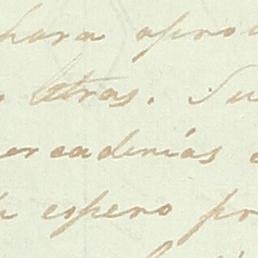 para apro
otras. Su
ercaderias
espero pr